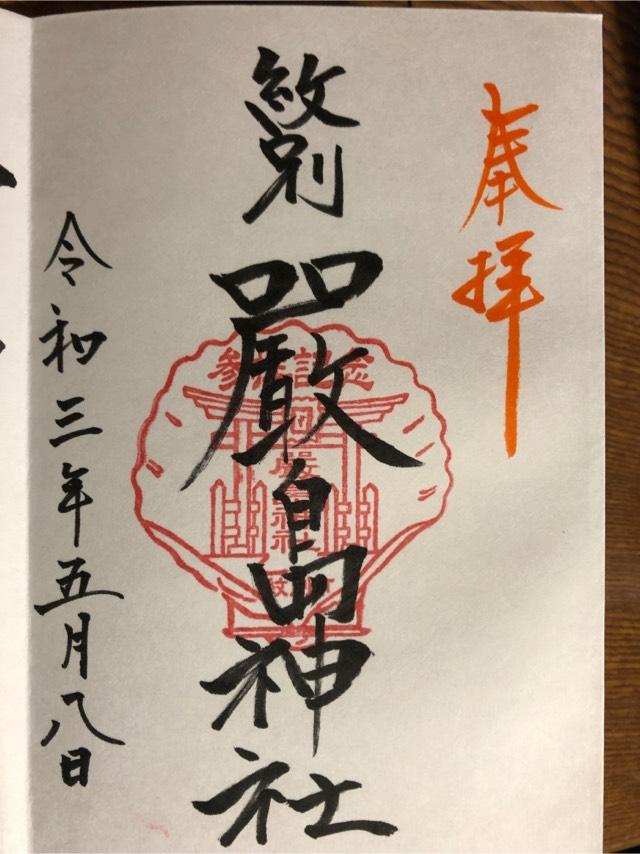 奉拝
紋別
嚴島神社
参拝記念
嚴島神社
令和三年五月八日